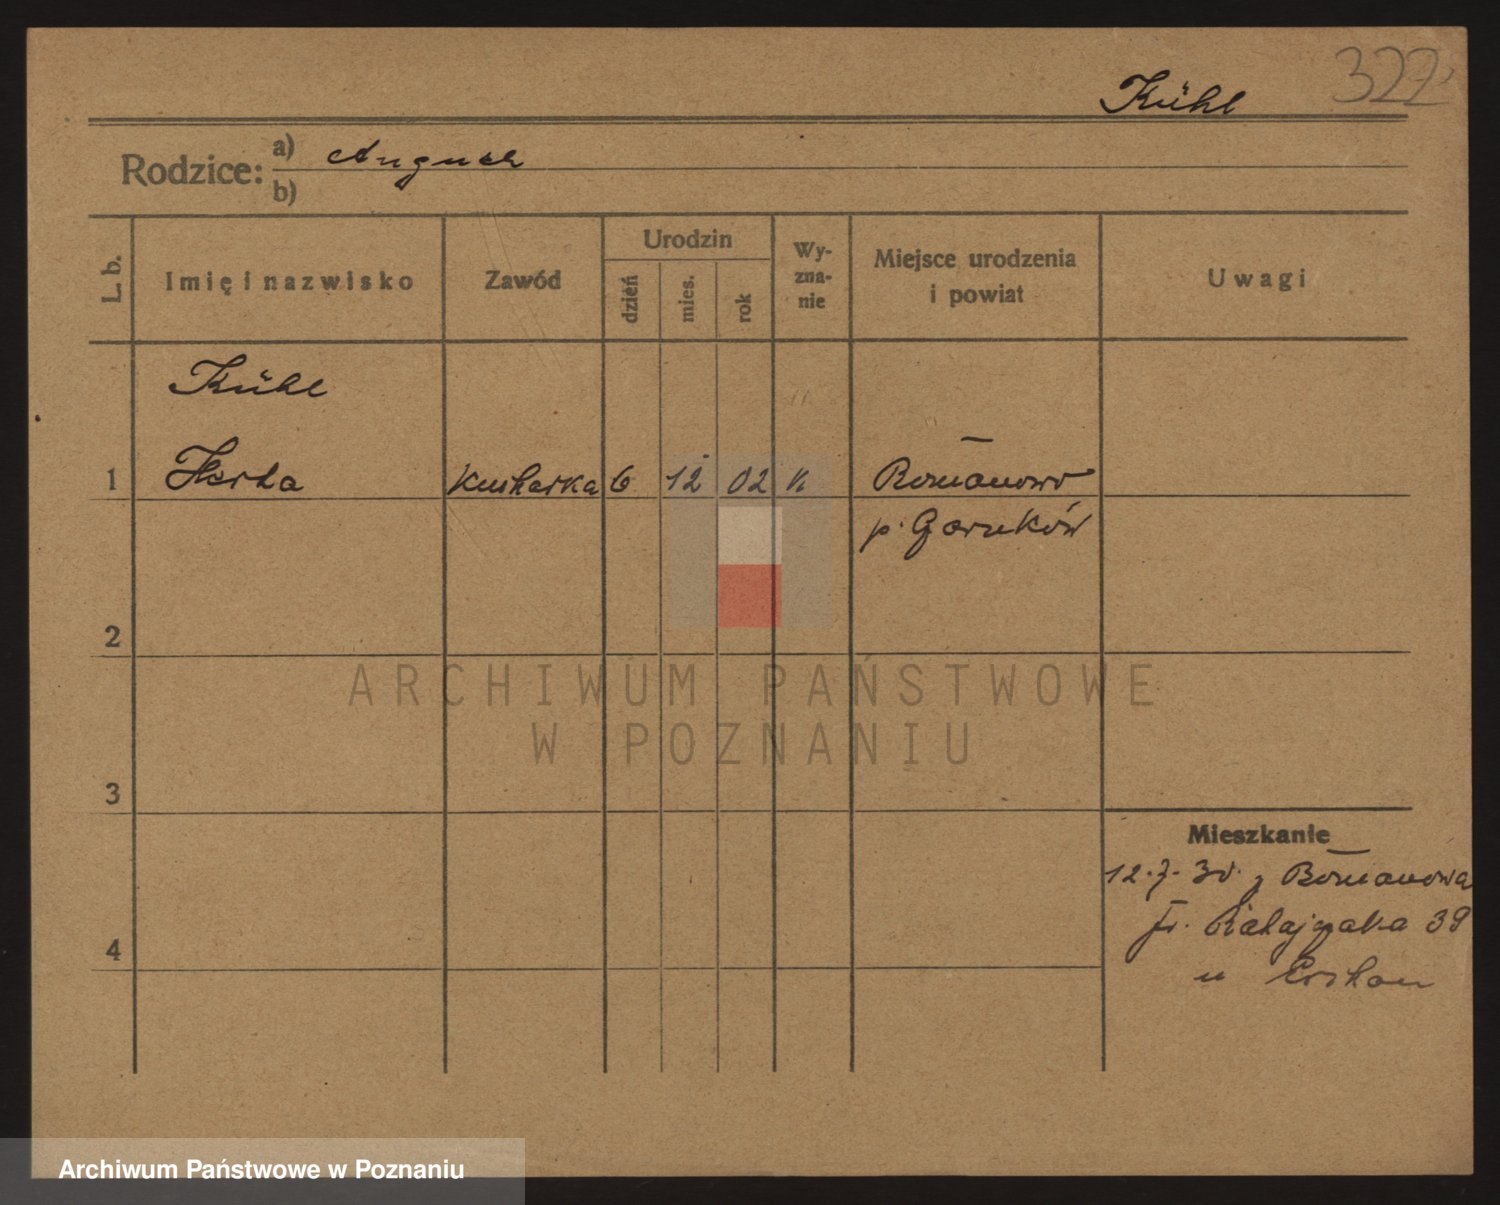 322
Kühl
Rodzice: a) August
b)
L. b. Imię i nazwisko Zawód Urodzin dzień mies. rok Wy-zna-nie Miejsce urodzenia i powiat Uwagi
Kühl
1 Herta Kucharka 6 12 02 Romanowo
p. Czarnków
2
ARCHIWUM PAŃSTWOWE
W POZNANIU
3
Mieszkanie
12.7.30. z Romanowa
4 Fr. Ratajczaka 39
u
Archiwum Państwowe w Poznaniu